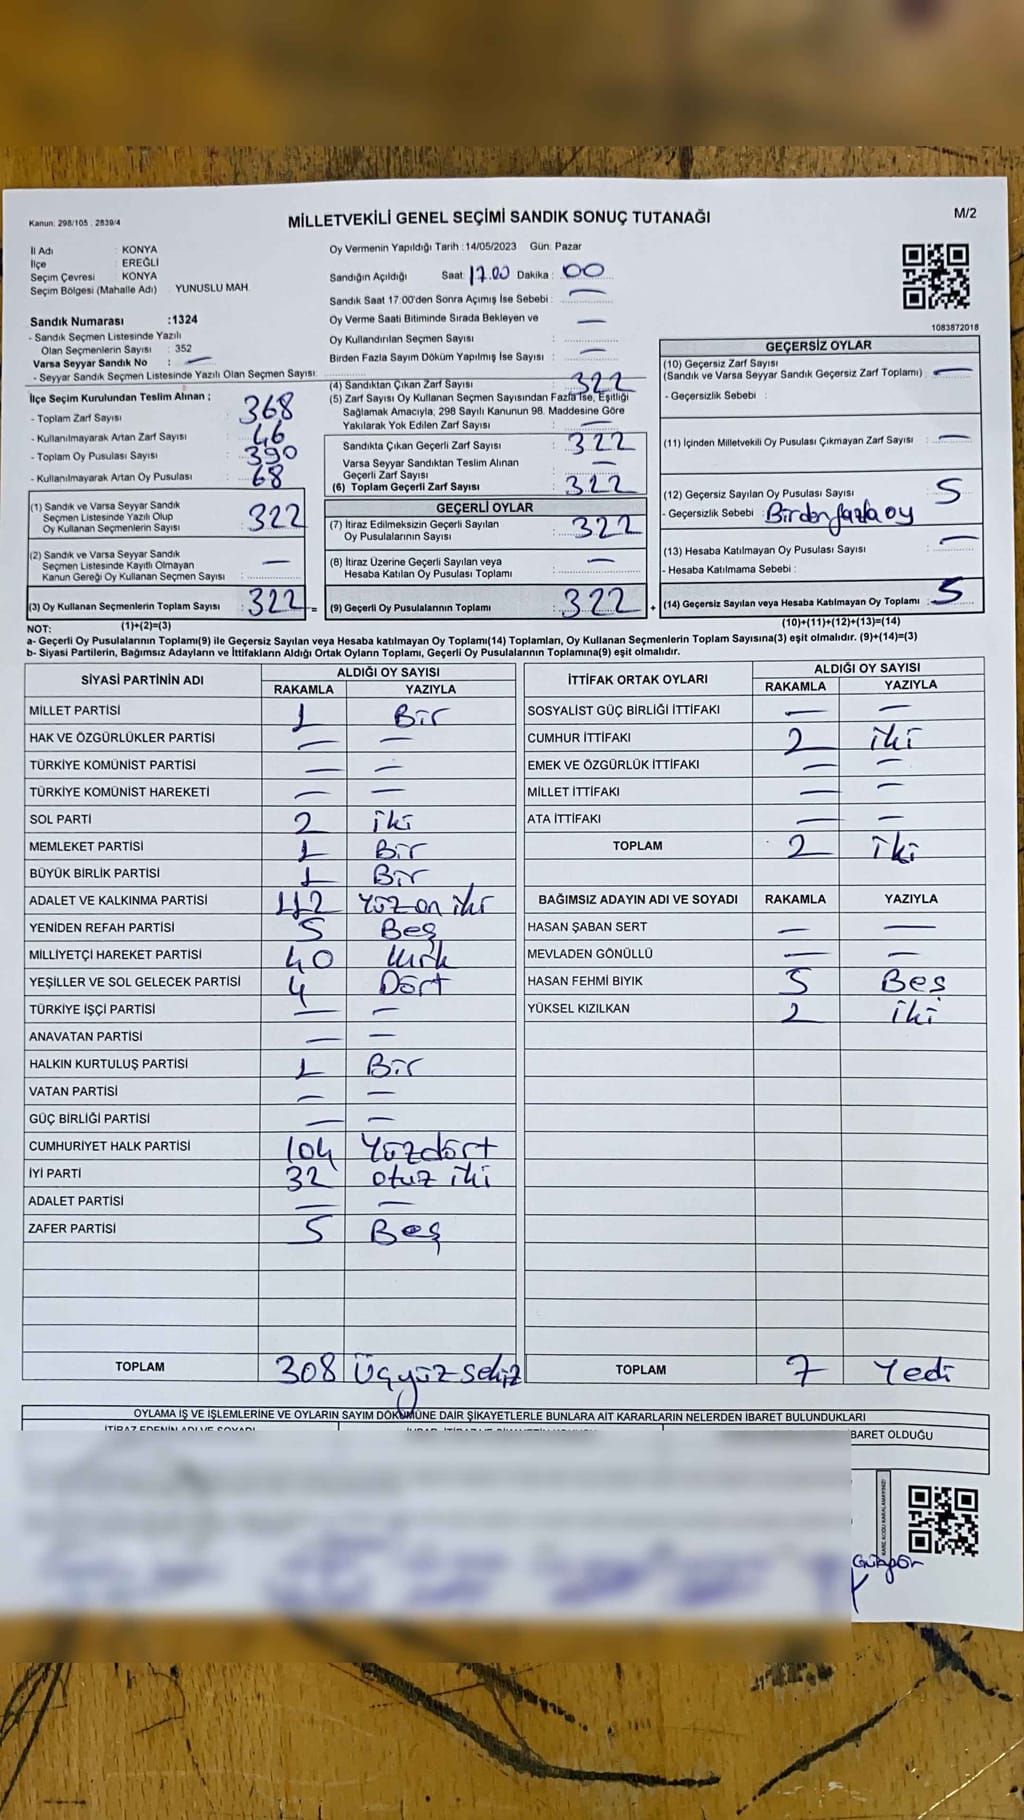 Kanun: 298/105 . 2839/4
MİLLETVEKİLİ GENEL SEÇİMİ SANDIK SONUÇ TUTANAĞI
M/2
İl Adı : KONYA
İlçe : EREĞLİ
Seçim Çevresi : KONYA
Seçim Bölgesi (Mahalle Adı) : YUNUSLU MAH.
Sandık Numarası :1324
- Sandık Seçmen Listesinde Yazılı
Olan Seçmenlerin Sayısı : 352
Varsa Seyyar Sandık No : —
- Seyyar Sandık Seçmen Listesinde Yazılı Olan Seçmen Sayısı:
Oy Vermenin Yapıldığı Tarih :14/05/2023 Gün: Pazar
Sandığın Açıldığı Saat: 17.00 Dakika : 00
Sandık Saat 17:00'den Sonra Açımış İse Sebebi : —
Oy Verme Saati Bitiminde Sırada Bekleyen ve
Oy Kullandırılan Seçmen Sayısı : —
Birden Fazla Sayım Döküm Yapılmış İse Sayısı : —
1083872018
İlçe Seçim Kurulundan Teslim Alınan ;
- Toplam Zarf Sayısı : 368
- Kullanılmayarak Artan Zarf Sayısı : 46
- Toplam Oy Pusulası Sayısı : 390
- Kullanılmayarak Artan Oy Pusulası : 68
(1) Sandık ve Varsa Seyyar Sandık
Seçmen Listesinde Yazılı Olup
Oy Kullanan Seçmenlerin Sayısı : 322
(2) Sandık ve Varsa Seyyar Sandık
Seçmen Listesinde Kayıtlı Olmayan
Kanun Gereği Oy Kullanan Seçmen Sayısı : —
(3) Oy Kullanan Seçmenlerin Toplam Sayısı : 322 =
(1)+(2)=(3)
(4) Sandıktan Çıkan Zarf Sayısı : 322
(5) Zarf Sayısı Oy Kullanan Seçmen Sayısından Fazla İse, Eşitliği
Sağlamak Amacıyla, 298 Sayılı Kanunun 98. Maddesine Göre
Yakılarak Yok Edilen Zarf Sayısı : —
Sandıkta Çıkan Geçerli Zarf Sayısı : 322
Varsa Seyyar Sandıktan Teslim Alınan
Geçerli Zarf Sayısı : —
(6) Toplam Geçerli Zarf Sayısı : 322
GEÇERLİ OYLAR
(7) İtiraz Edilmeksizin Geçerli Sayılan
Oy Pusulalarının Sayısı : 322
(8) İtiraz Üzerine Geçerli Sayılan veya
Hesaba Katılan Oy Pusulası Toplamı : —
(9) Geçerli Oy Pusulalarının Toplamı : 322 +
GEÇERSİZ OYLAR
(10) Geçersiz Zarf Sayısı
(Sandık ve Varsa Seyyar Sandık Geçersiz Zarf Toplamı) : —
- Geçersizlik Sebebi :
(11) İçinden Milletvekili Oy Pusulası Çıkmayan Zarf Sayısı : —
(12) Geçersiz Sayılan Oy Pusulası Sayısı : 5
- Geçersizlik Sebebi : Birden fazla oy
(13) Hesaba Katılmayan Oy Pusulası Sayısı : —
- Hesaba Katılmama Sebebi :
(14) Geçersiz Sayılan veya Hesaba Katılmayan Oy Toplamı : 5
(10)+(11)+(12)+(13)=(14)
NOT:
a- Geçerli Oy Pusulalarının Toplamı(9) ile Geçersiz Sayılan veya Hesaba katılmayan Oy Toplamı(14) Toplamları, Oy Kullanan Seçmenlerin Toplam Sayısına(3) eşit olmalıdır. (9)+(14)=(3)
b- Siyasi Partilerin, Bağımsız Adayların ve İttifakların Aldığı Ortak Oyların Toplamı, Geçerli Oy Pusulalarının Toplamına(9) eşit olmalıdır.
SİYASİ PARTİNİN ADI ALDIĞI OY SAYISI
RAKAMLA YAZIYLA
MİLLET PARTİSİ 1 Bir
HAK VE ÖZGÜRLÜKLER PARTİSİ — —
TÜRKİYE KOMÜNİST PARTİSİ — —
TÜRKİYE KOMÜNİST HAREKETİ — —
SOL PARTİ 2 iki
MEMLEKET PARTİSİ 1 Bir
BÜYÜK BİRLİK PARTİSİ 1 Bir
ADALET VE KALKINMA PARTİSİ 112 Yüz on iki
YENİDEN REFAH PARTİSİ 5 Beş
MİLLİYETÇİ HAREKET PARTİSİ 40 Kırk
YEŞİLLER VE SOL GELECEK PARTİSİ 4 Dört
TÜRKİYE İŞÇİ PARTİSİ — —
ANAVATAN PARTİSİ — —
HALKIN KURTULUŞ PARTİSİ 1 Bir
VATAN PARTİSİ — —
GÜÇ BİRLİĞİ PARTİSİ — —
CUMHURİYET HALK PARTİSİ 104 Yüzdört
İYİ PARTİ 32 otuz iki
ADALET PARTİSİ — —
ZAFER PARTİSİ 5 Beş
TOPLAM 308 Üçyüz sekiz
İTTİFAK ORTAK OYLARI ALDIĞI OY SAYISI
RAKAMLA YAZIYLA
SOSYALİST GÜÇ BİRLİĞİ İTTİFAKI — —
CUMHUR İTTİFAKI 2 iki
EMEK VE ÖZGÜRLÜK İTTİFAKI — —
MİLLET İTTİFAKI — —
ATA İTTİFAKI — —
TOPLAM 2 iki
BAĞIMSIZ ADAYIN ADI VE SOYADI RAKAMLA YAZIYLA
HASAN ŞABAN SERT — —
MEVLADEN GÖNÜLLÜ — —
HASAN FEHMİ BIYIK 5 Beş
YÜKSEL KIZILKAN 2 iki
TOPLAM 7 Yedi
OYLAMA İŞ VE İŞLEMLERİNE VE OYLARIN SAYIM DÖKÜMÜNE DAİR ŞİKAYETLERLE BUNLARA AİT KARARLARIN NELERDEN İBARET BULUNDUKLARI
İTİRAZ EDENİN ADI VE SOYADI
BARET OLDUĞU